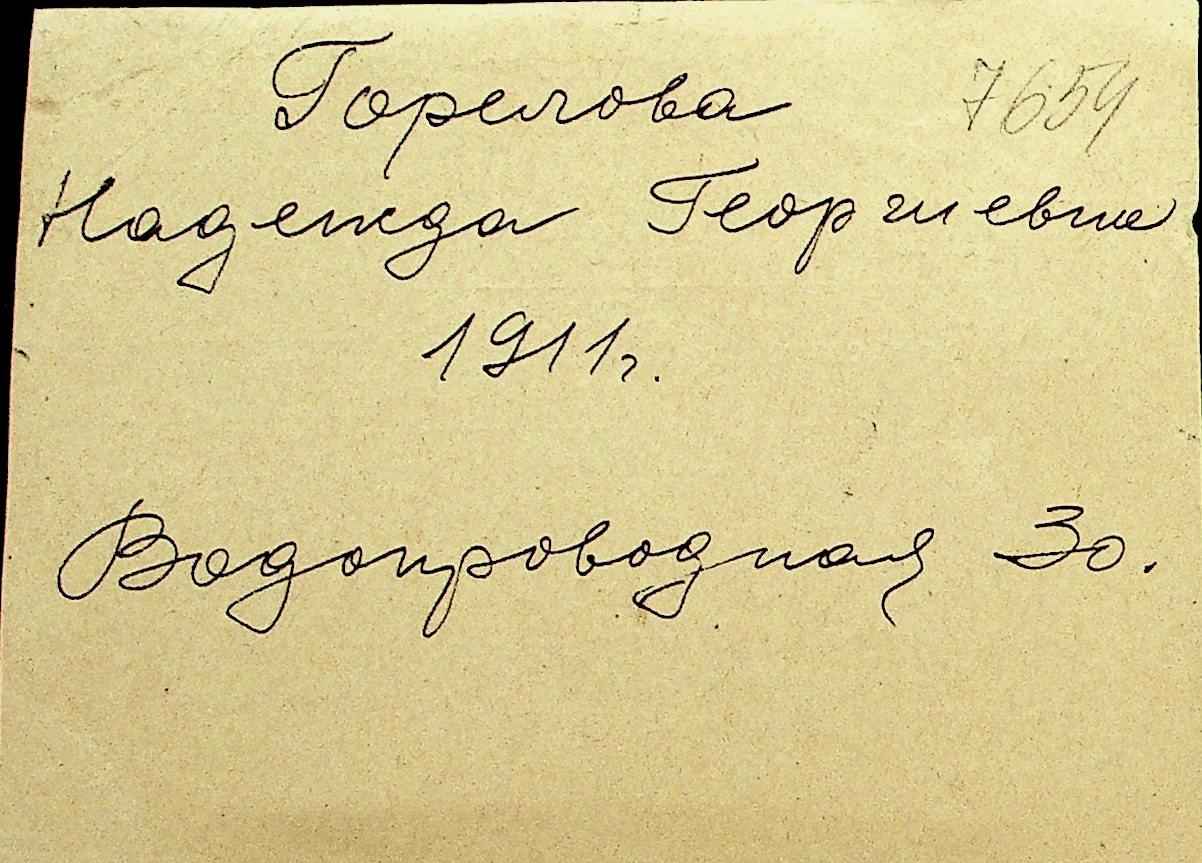 Горелова 7654
Надежда Георгиевна
1911г.
Водопроводная 30.